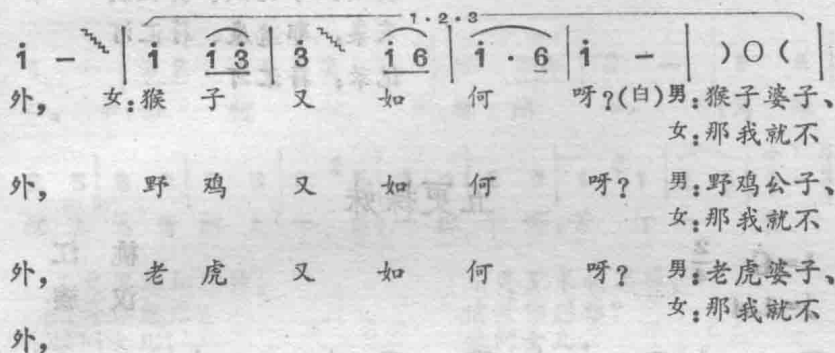 1·2·3
i - | i i 3 | 3 i 6 | i · 6 | i - | )○( |
外, 女:猴 子 又 如 何 呀?(白)男:猴子婆子、
女:那我就不
外, 野 鸡 又 如 何 呀? 男:野鸡公子、
女:那我就不
外, 老 虎 又 如 何 呀? 男:老虎婆子、
女:那我就不
外,